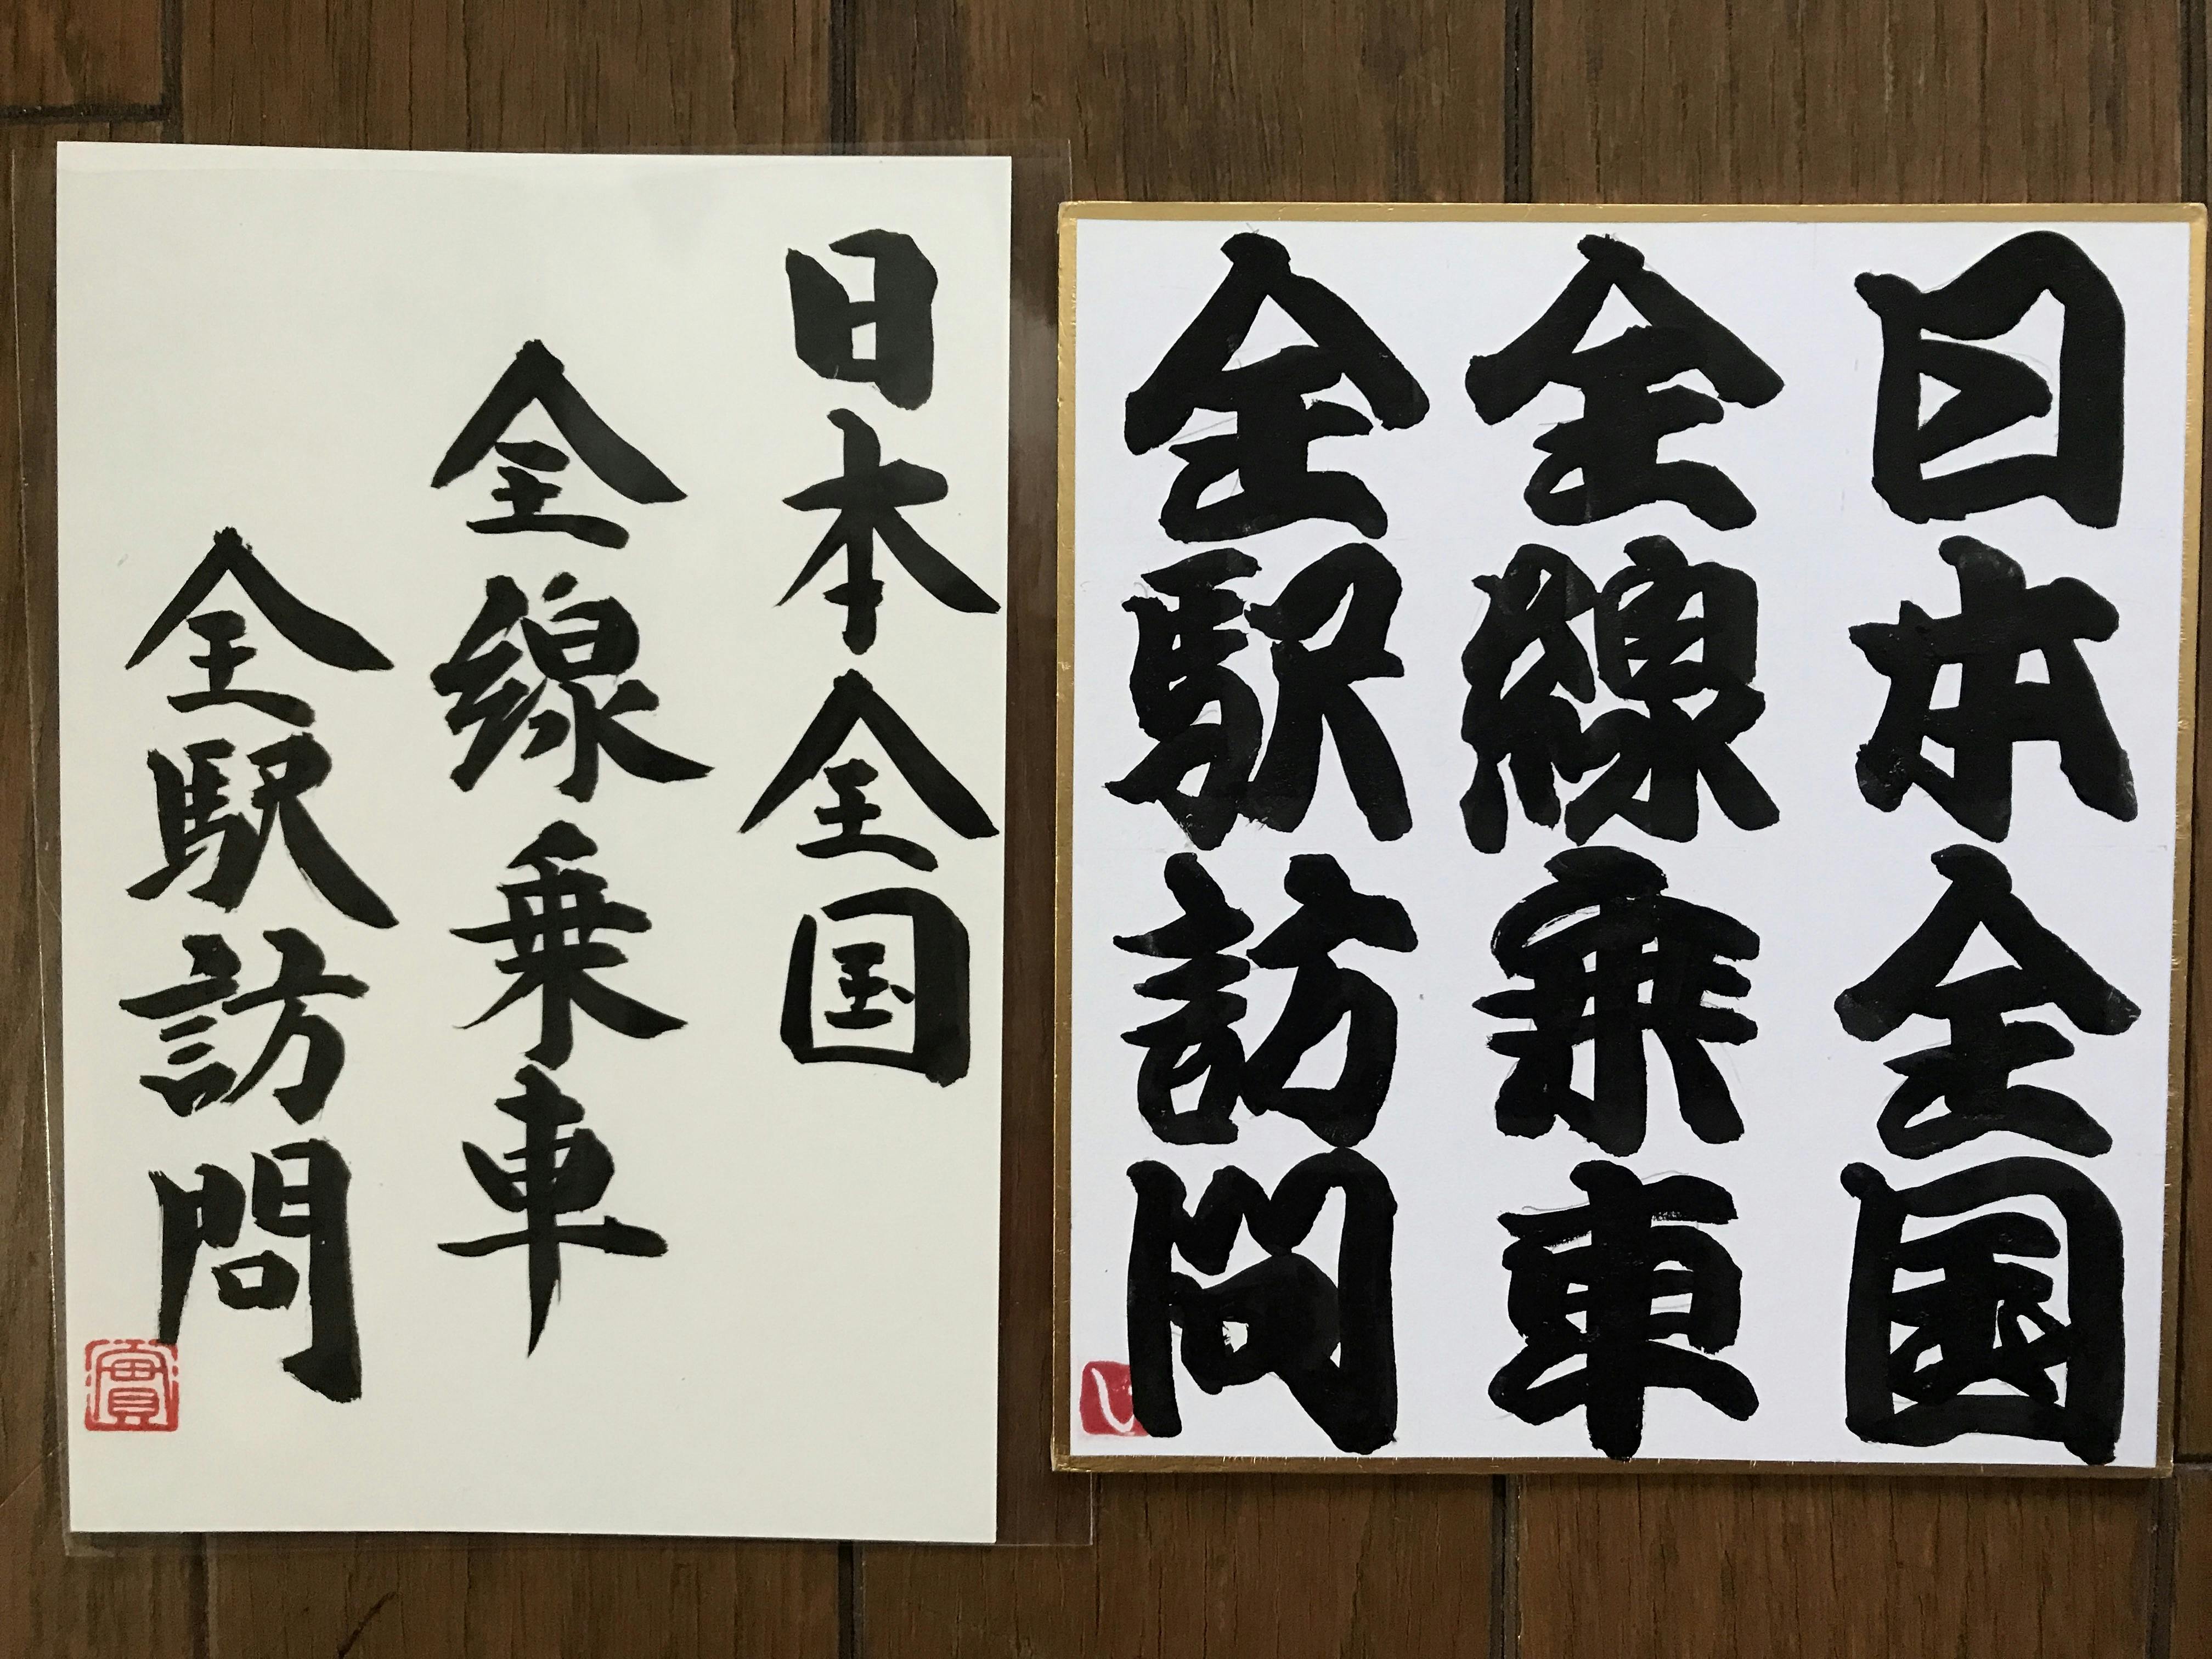 日本全国
全線乗車
全駅訪問
實
日本全国
全線乗車
全駅訪問
い